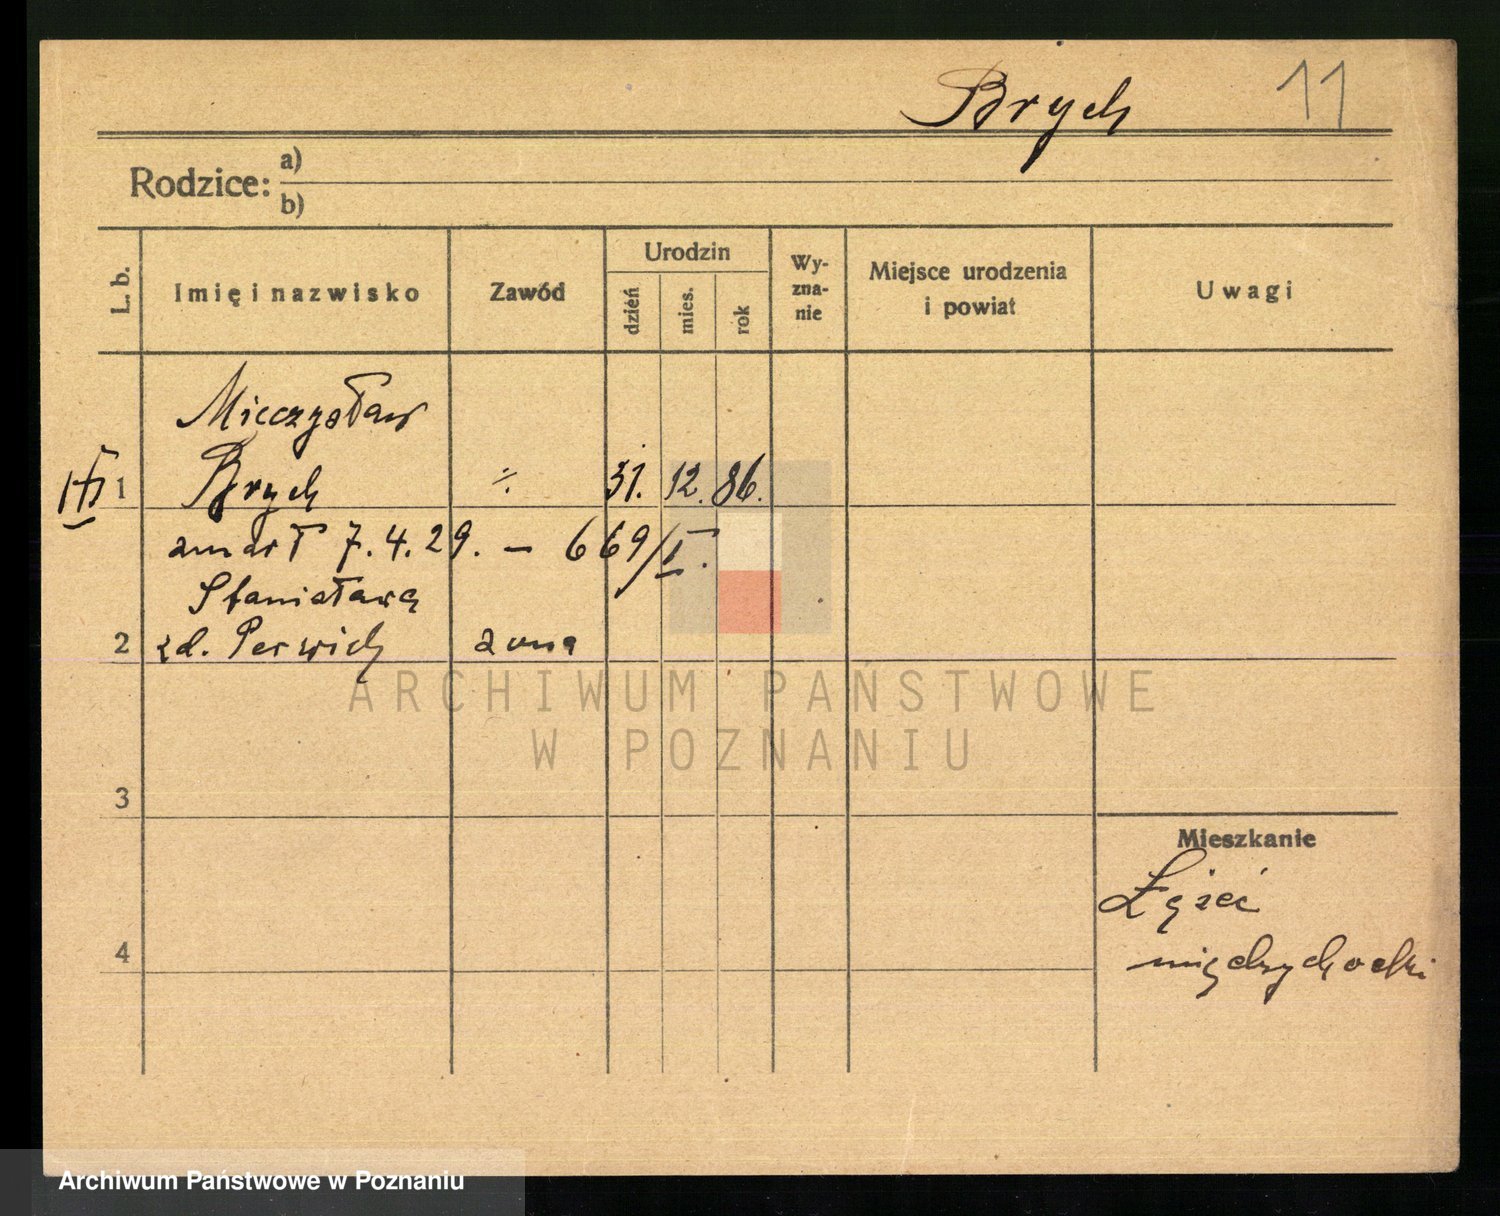 Brych 11
Rodzice: a)
b)
L. b.
Imię i nazwisko
Zawód
Urodzin
dzień
mies.
rok
Wy-
zna-
nie
Miejsce urodzenia
i powiat
Uwagi
Mieczysław
1 Brych 31. 12. 86.
zmarł 7.4.29. – 669/I.
Stanisława
2 zd. Perwich żona
3
Mieszkanie
4
międzychodzki
ARCHIWUM PAŃSTWOWE
W POZNANIU
Archiwum Państwowe w Poznaniu